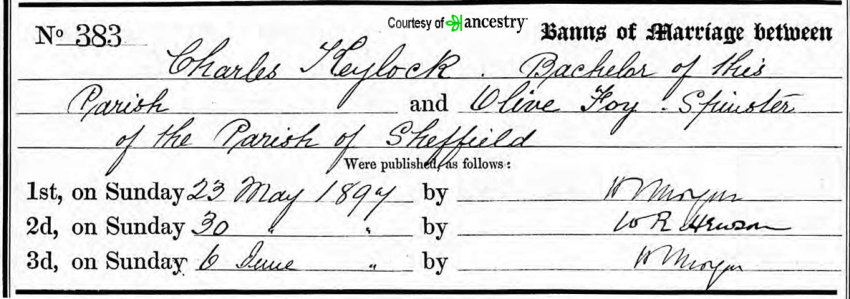 Nº 383 Courtesy of ancestry Banns of Marriage between
Charles Heylock. Bachelor of this
Parish and Olive Foy. Spinster
of the Parish of Sheffield
Were published, as follows:
1st, on Sunday 23 May 1897 by W Morgan
2d, on Sunday 30 " " by W R Hewson
3d, on Sunday 6 June " by W Morgan